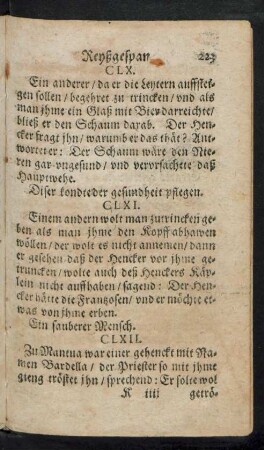 Reyßgespan 223
CLX.
Ein anderer / da er die Leytern auffstei-
gen sollen / begehret zu trincken / vnd als
man jhme ein Glaß mit Bier darreichte /
bließ er den Schaum darab. Der Hen-
cker fragt jhn / warumb er das thät? Ant-
wortet er: Der Schaum wäre den Nie-
ren gar vngesund / vnd verursachete daß
Hauptwehe.
Diser kondte der gesundheit pflegen.
CLXI.
Einem andern wolt man zutrincken ge-
ben als man jhme den Kopff abhawen
wöllen / der wolt es nicht annemen / dann
er gesehen daß der Hencker vor jhme ge-
truncken / wolte auch deß Henckers Käp-
lein nicht auffhaben / sagend: Der Hen-
cker hätte die Frantzosen / vnd er möchte et-
was von jhme erben.
Ein sauberer Mensch.
CLXII.
Zu Mantua war einer gehenckt mit Na-
men Bardella / der Priester so mit jhme
gieng tröstet jhn / sprechend: Er solte wol
K iiij getrö-